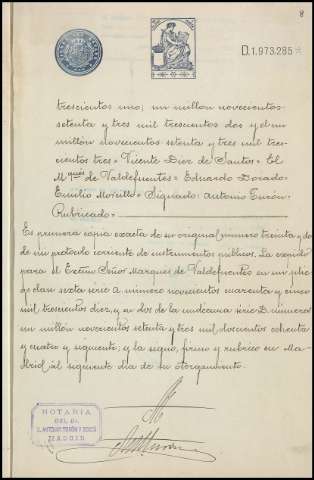 8
D.1.973.285
trescientos uno; un millon novecientos
setenta y tres mil trescientos dos y el un
millon novecientos setenta y tres mil tres-
cientos tres = Vicente Dior de Santos = El
Mqués de Valdefuentes = Eduardo Dorado =
Emilio Morcillo = Signado: Antonio Turón:
Rubricado =
Es primera copia exacta de su original número treinta y dos
de mi protocolo corriente de instrumentos públicos. La expido
para el Excmo Señor Marqués de Valdefuentes en un plie-
go clase sexta serie A número novecientos cuarenta y cinco
mil trescientos diez, y en dos de la undecima serie D. números
un millón novecientos setenta y tres mil doscientos ochenta
y cuatro y siguiente; y la signo, firmo y rubrico en Ma-
drid al siguiente dia de su otorgamiento.
NOTARIA
DEL DR.
D. ANTONIO TURÓN Y BOSCÁ
MADRID